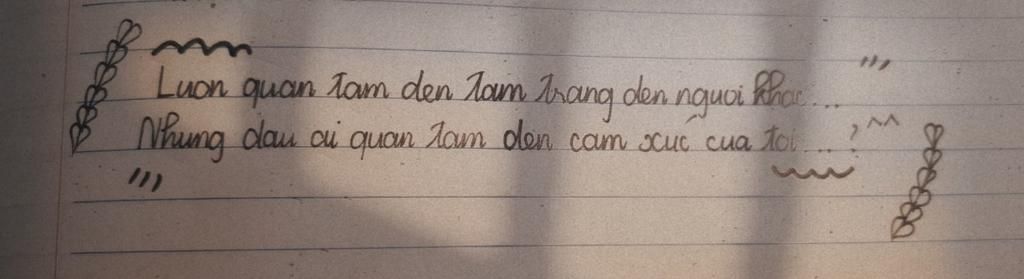 Luon quan tam den tam trang den nguoi khac...
Nhung dau ai quan tam den cam xuc cua toi...? ^^